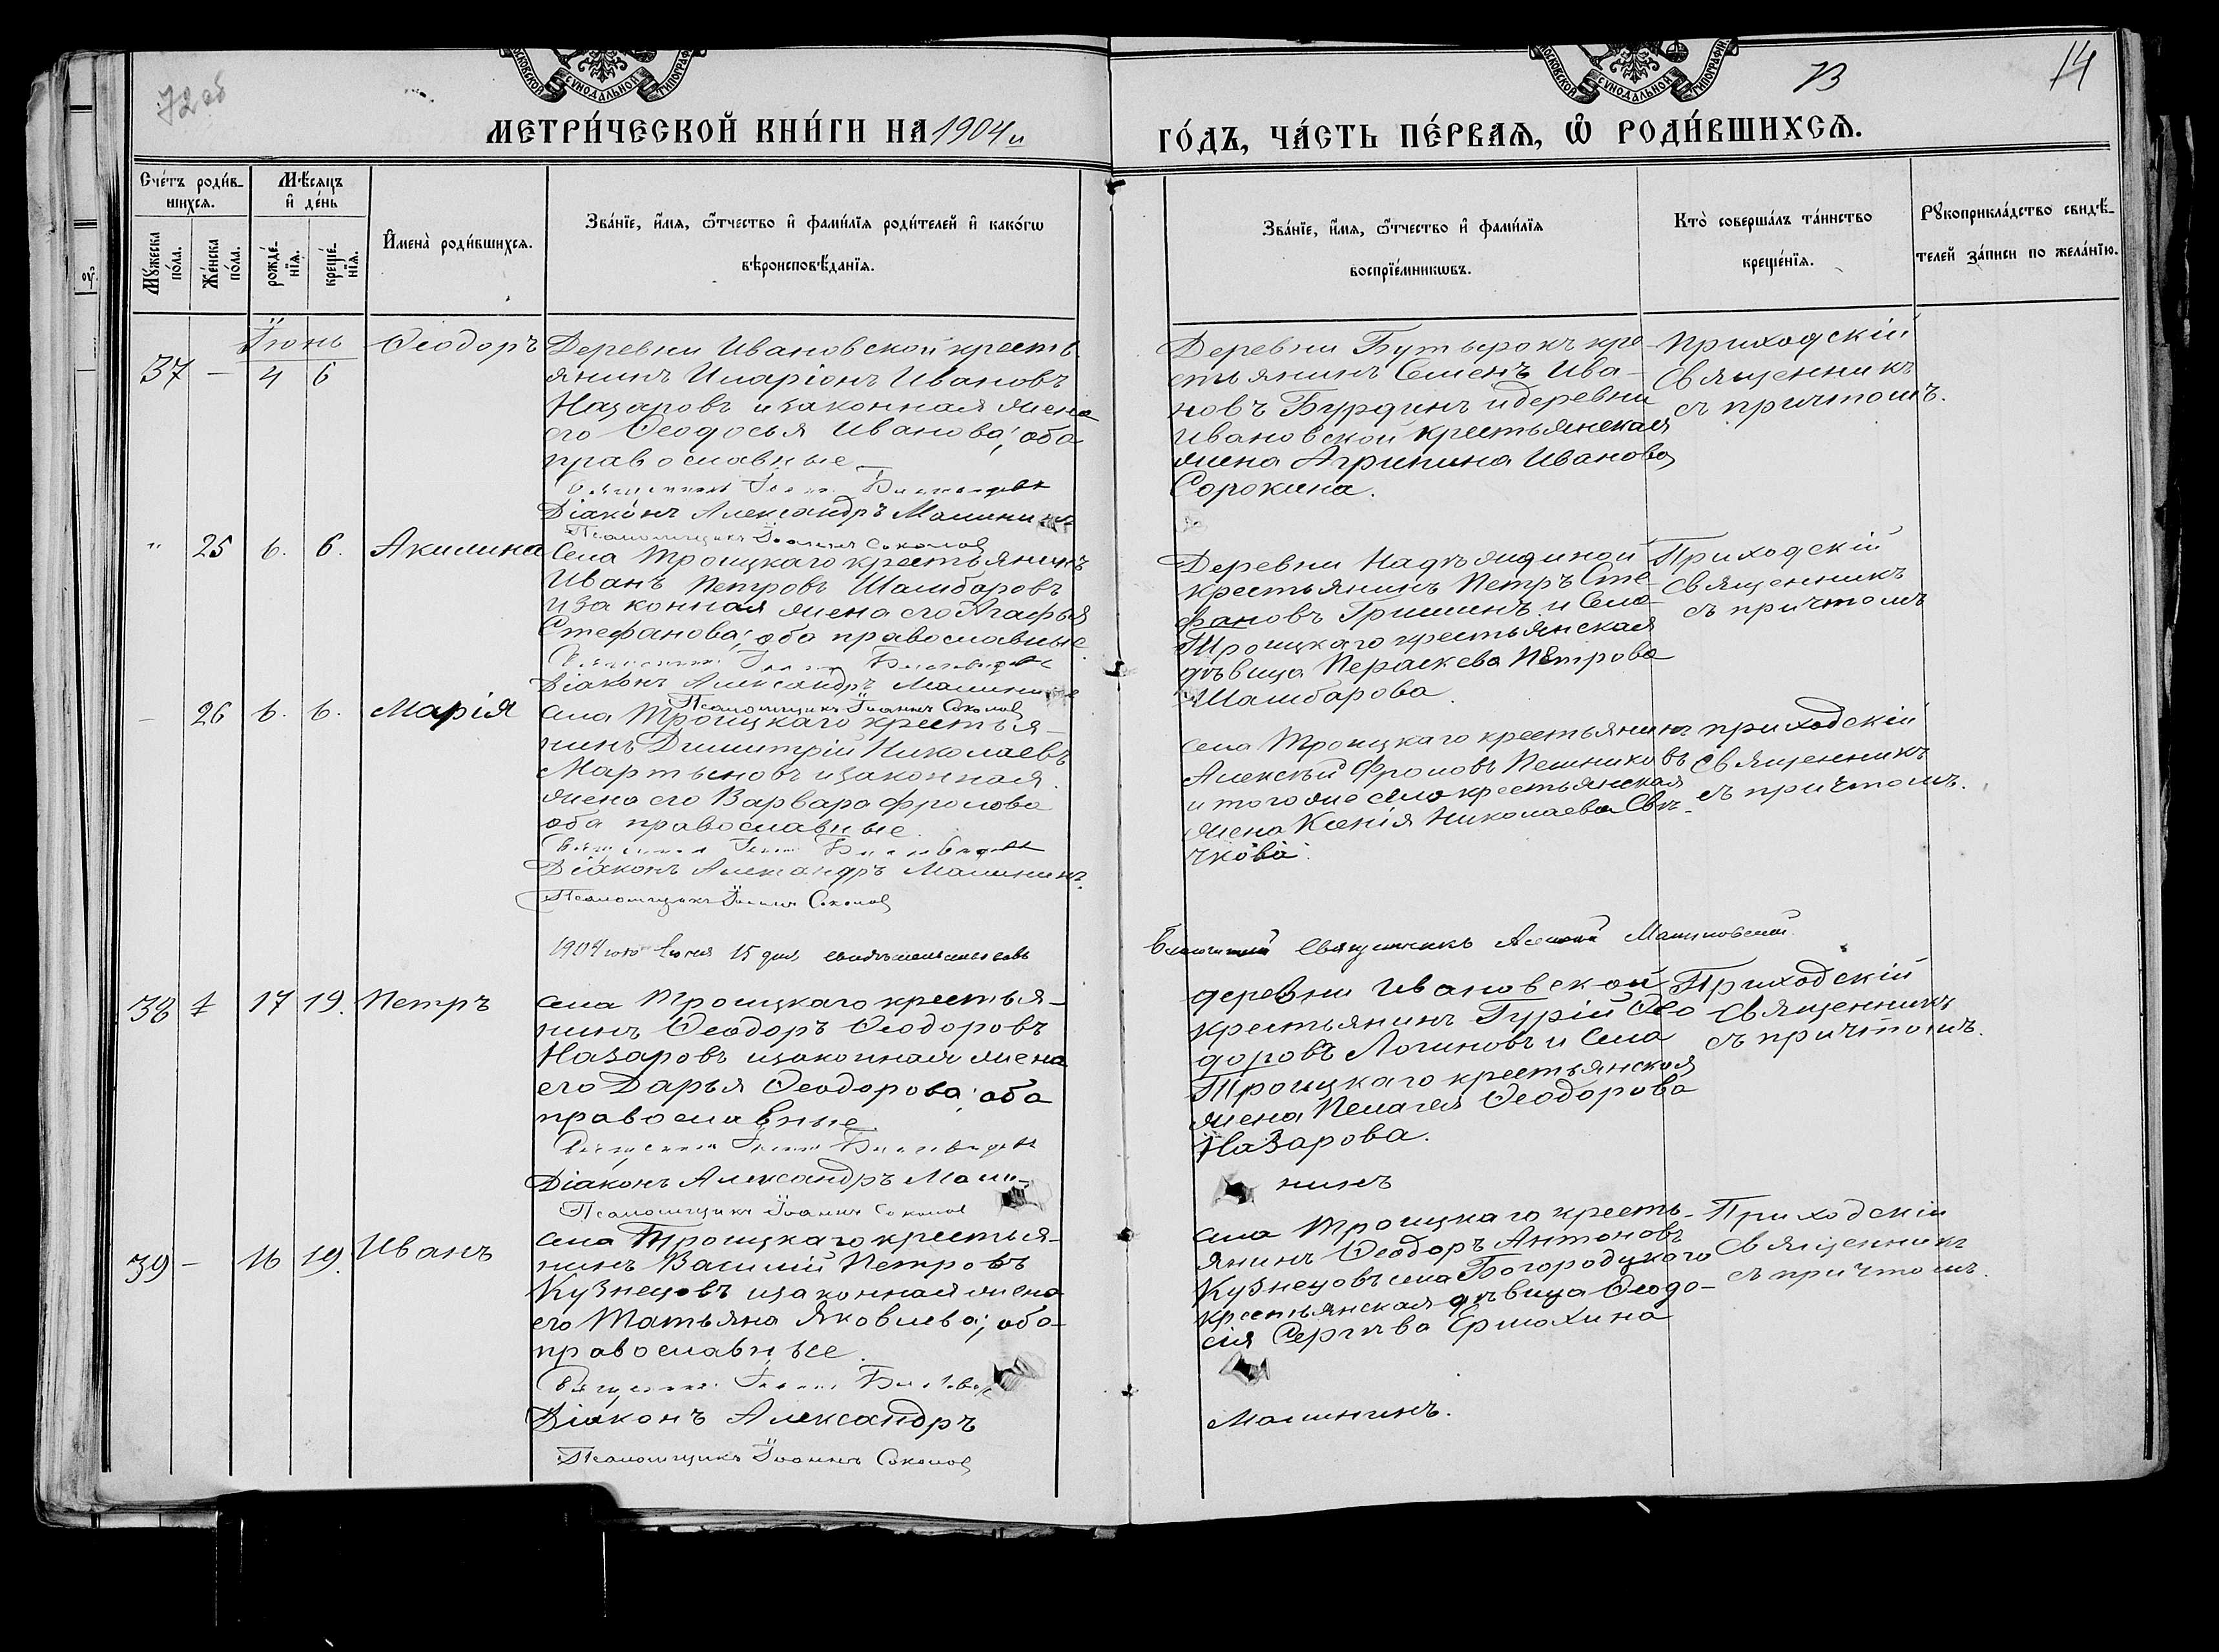 72об
73
14
МОСКОВСКОЙ СѴНОДАЛЬНОЙ ТИПОГРАФІИ
МОСКОВСКОЙ СѴНОДАЛЬНОЙ ТИПОГРАФІИ
МЕТРИ́ЧЕСКОЙ КНИ́ГИ НА 1904й
ГО́ДЪ, ЧА́СТЬ ПЕ́РВАѦ, Ѡ РОДИ́ВШИХСѦ.
Сче́тъ роди́в-
шихсѧ.
Мѣ́сѧцъ
и де́нь
Мꙋ́жеска по́ла.
Же́нска по́ла.
рожде́-
нїѧ.
креще́-
нїѧ.
И҆мена̀ роди́вшихсѧ.
Зва́нїе, и҆́мѧ, ѻ҆́тчество и҆ фами́лїѧ роди́телей и҆ како́гѡ
вѣроисповѣ́данїѧ.
Зва́нїе, и҆́мѧ, ѻ҆́тчество и҆ фами́лїѧ
воспрїе́мникѡвъ.
Кто̀ соверша́лъ та́инство
креще́нїѧ.
Рꙋкоприкла́дство свидѣ́-
телей за́писи по жела́нїю.
37 - Іюнь 4 6 Ѳеодоръ
Деревни Ивановской кресть
янинъ Иларіонъ Ивановъ
Назаровъ и законная жена
его Ѳеодосья Иванова; оба
православные
Священникъ Іоаннъ
Діаконъ Александръ Малининъ
Псаломщикъ Іоаннъ Соколов
Деревни Бутырокъ кре-
стьянинъ Семенъ Ива-
новъ Бурдинъ и деревни
Ивановской крестьянская
жена Агрипина Иванова
Сорокина.
Приходскій
Священникъ
съ причтомъ.
" 25 6. 6. Акилина
Села Троицкаго крестьянинъ
Иванъ Петровъ Шамбаровъ
и законная жена его Агафья
Стефанова; оба православные.
Священникъ Іоаннъ
Діаконъ Александръ Малининъ
Псаломщикъ Іоаннъ Соколов
Деревни Надѣждиной
крестьянинъ Петръ Сте-
фановъ Гришинъ и Села
Троицкаго крестьянская
дѣвица Пераскева Петрова
Шамбарова.
Приходскій
священникъ
съ причтомъ
- 26 6. 6. Марія
Села Троицкаго крестья-
нинъ Димитрій Николаевъ
Мартыновъ и законная
жена его Варвара Фролова
оба православные.
Священникъ Іоаннъ
Діаконъ Александръ Малининъ.
Псаломщикъ Іоаннъ Соколов
села Троицкаго крестьянинъ
Алексѣй Фроловъ Пешниковъ
и того же села крестьянская
жена Ксенія Николаева Свѣ-
чкова.
приходскій
священникъ
съ причтомъ.
1904 года Іюня 15 дня свидѣтельствовалъ
Благочинный Священникъ Алексѣй
38 17 19. Петръ
села Троицкаго крестья-
нинъ Ѳеодоръ Ѳеодоровъ
Назаровъ и законная жена
его Дарья Ѳеодорова; оба
православные.
Священникъ Іоаннъ
Діаконъ Александръ Мали-
нинъ
Псаломщикъ Іоаннъ Соколов
деревни Ивановской
крестьянинъ Гурій Ѳео
доровъ Логиновъ и Села
Троицкаго крестьянская
жена Пелагея Ѳеодорова
Назарова.
Приходскій
Священникъ
съ причтомъ.
39 - 16 19. Иванъ
села Троицкаго крестья-
нинъ Василій Петровъ
Кузнецовъ и законная жена
его Татьяна Яковлева; оба
православные.
Священникъ Іоаннъ
Діаконъ Александръ
Малининъ.
Псаломщикъ Іоаннъ Соколов
села Троицкаго кресть-
янинъ Ѳеодоръ Антоновъ
Кузнецовъ села Богородцкаго
крестьянская дѣвица Ѳеодо-
сія Сергѣева Ермохина
Приходскій
Священникъ
съ причтомъ.